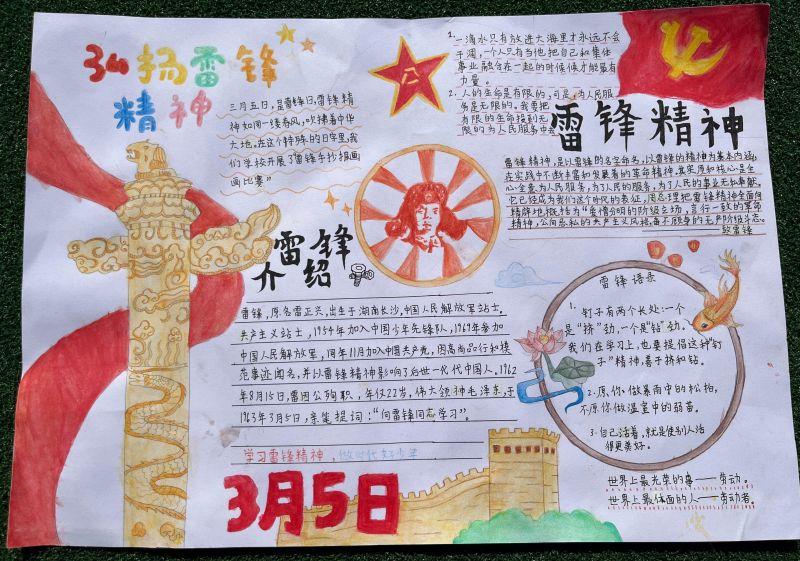 弘扬雷锋
精神
三月五日，是雷锋日，雷锋精
神如同一缕春风，吹拂着中华
大地，在这个特殊的日字里，我
们学校开展了雷锋手抄报画
画比赛”
1. 一滴水只有放进大海里才永远不会
干涸，一个人只有当他把自己和集体
事业融合在一起的时候候才能最有
力量。
2. 人的生命是有限的，可是，为人民服
务是无限的。我要把
有限的生命投到无
限的为人民服务中我
雷锋精神
雷锋精神，是以雷锋的名字命名，以雷锋的精神为基本内涵，
在实践中不断丰富和发展着的革命精神，其实质和核心是全
心全意为人民服务，为了人民的服务，为了人民的事业无私奉献，
它已经成为我们这个时代的表征，周总理把雷锋精神全面而
精辟地概括为“爱憎分明的阶级立场，言行一致的革命
精神，公而忘私的共产主义风格，奋不顾身的无产阶级斗志。
雷锋
介绍
雷锋，原名雷正兴，出生于湖南长沙，中国人民解放军战士，
共产主义战士，1954年加入中国少年先锋队，1960年参加
中国人民解放军，同年11月加入中国共产党，因高尚品行和模
范事迹闻名，并以雷锋精神影响了后世一代代中国人，1962
年8月15日，雷因公殉职，年仅22岁，伟大领神毛泽东，于
1963年3月5日，亲笔提词：“向雷锋同志学习”。
学习雷锋精神，做时代好少年
3月5日
雷锋语录
1. 钉子有两个长处：一个
是“挤”劲，一个是“钻”劲。
我们在学习上，也要提倡这种“钉
子”精神，善于挤和钻。
2. 原，你做暴雨中的松拍，
不原你做温室中的弱苗。
3. 自己活着，就是使别人活
得更美好。
世界上最光荣的事——劳动。
世界上最体面的人——劳动者。